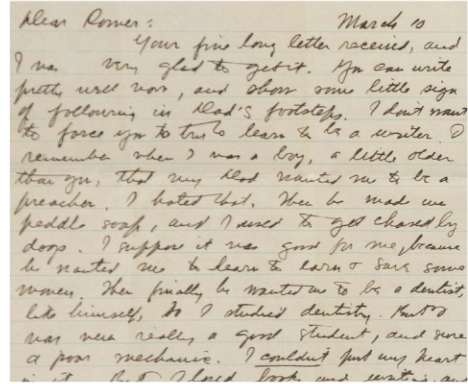 Dear Romer:    March 10
Your fine long letter received, and
I was very glad to get it. You can write
pretty well now, and show some little sign
of following in Dad's footsteps. I don't want
to force you to try to learn to be a writer. I
remember when I was a boy, a little older
than you, that my Dad wanted me to be a
preacher. I hated that. Then he made me
peddle soap, and I used to get chased by
dogs. I suppose it was good for me, because
he wanted me to learn to earn & save some
money. Then finally he wanted me to be a dentist,
like himself, So I studied dentistry. But I
was never really a good student, and sure
a poor mechanic. I couldn't put my heart
in it. But I loved books and writing, and